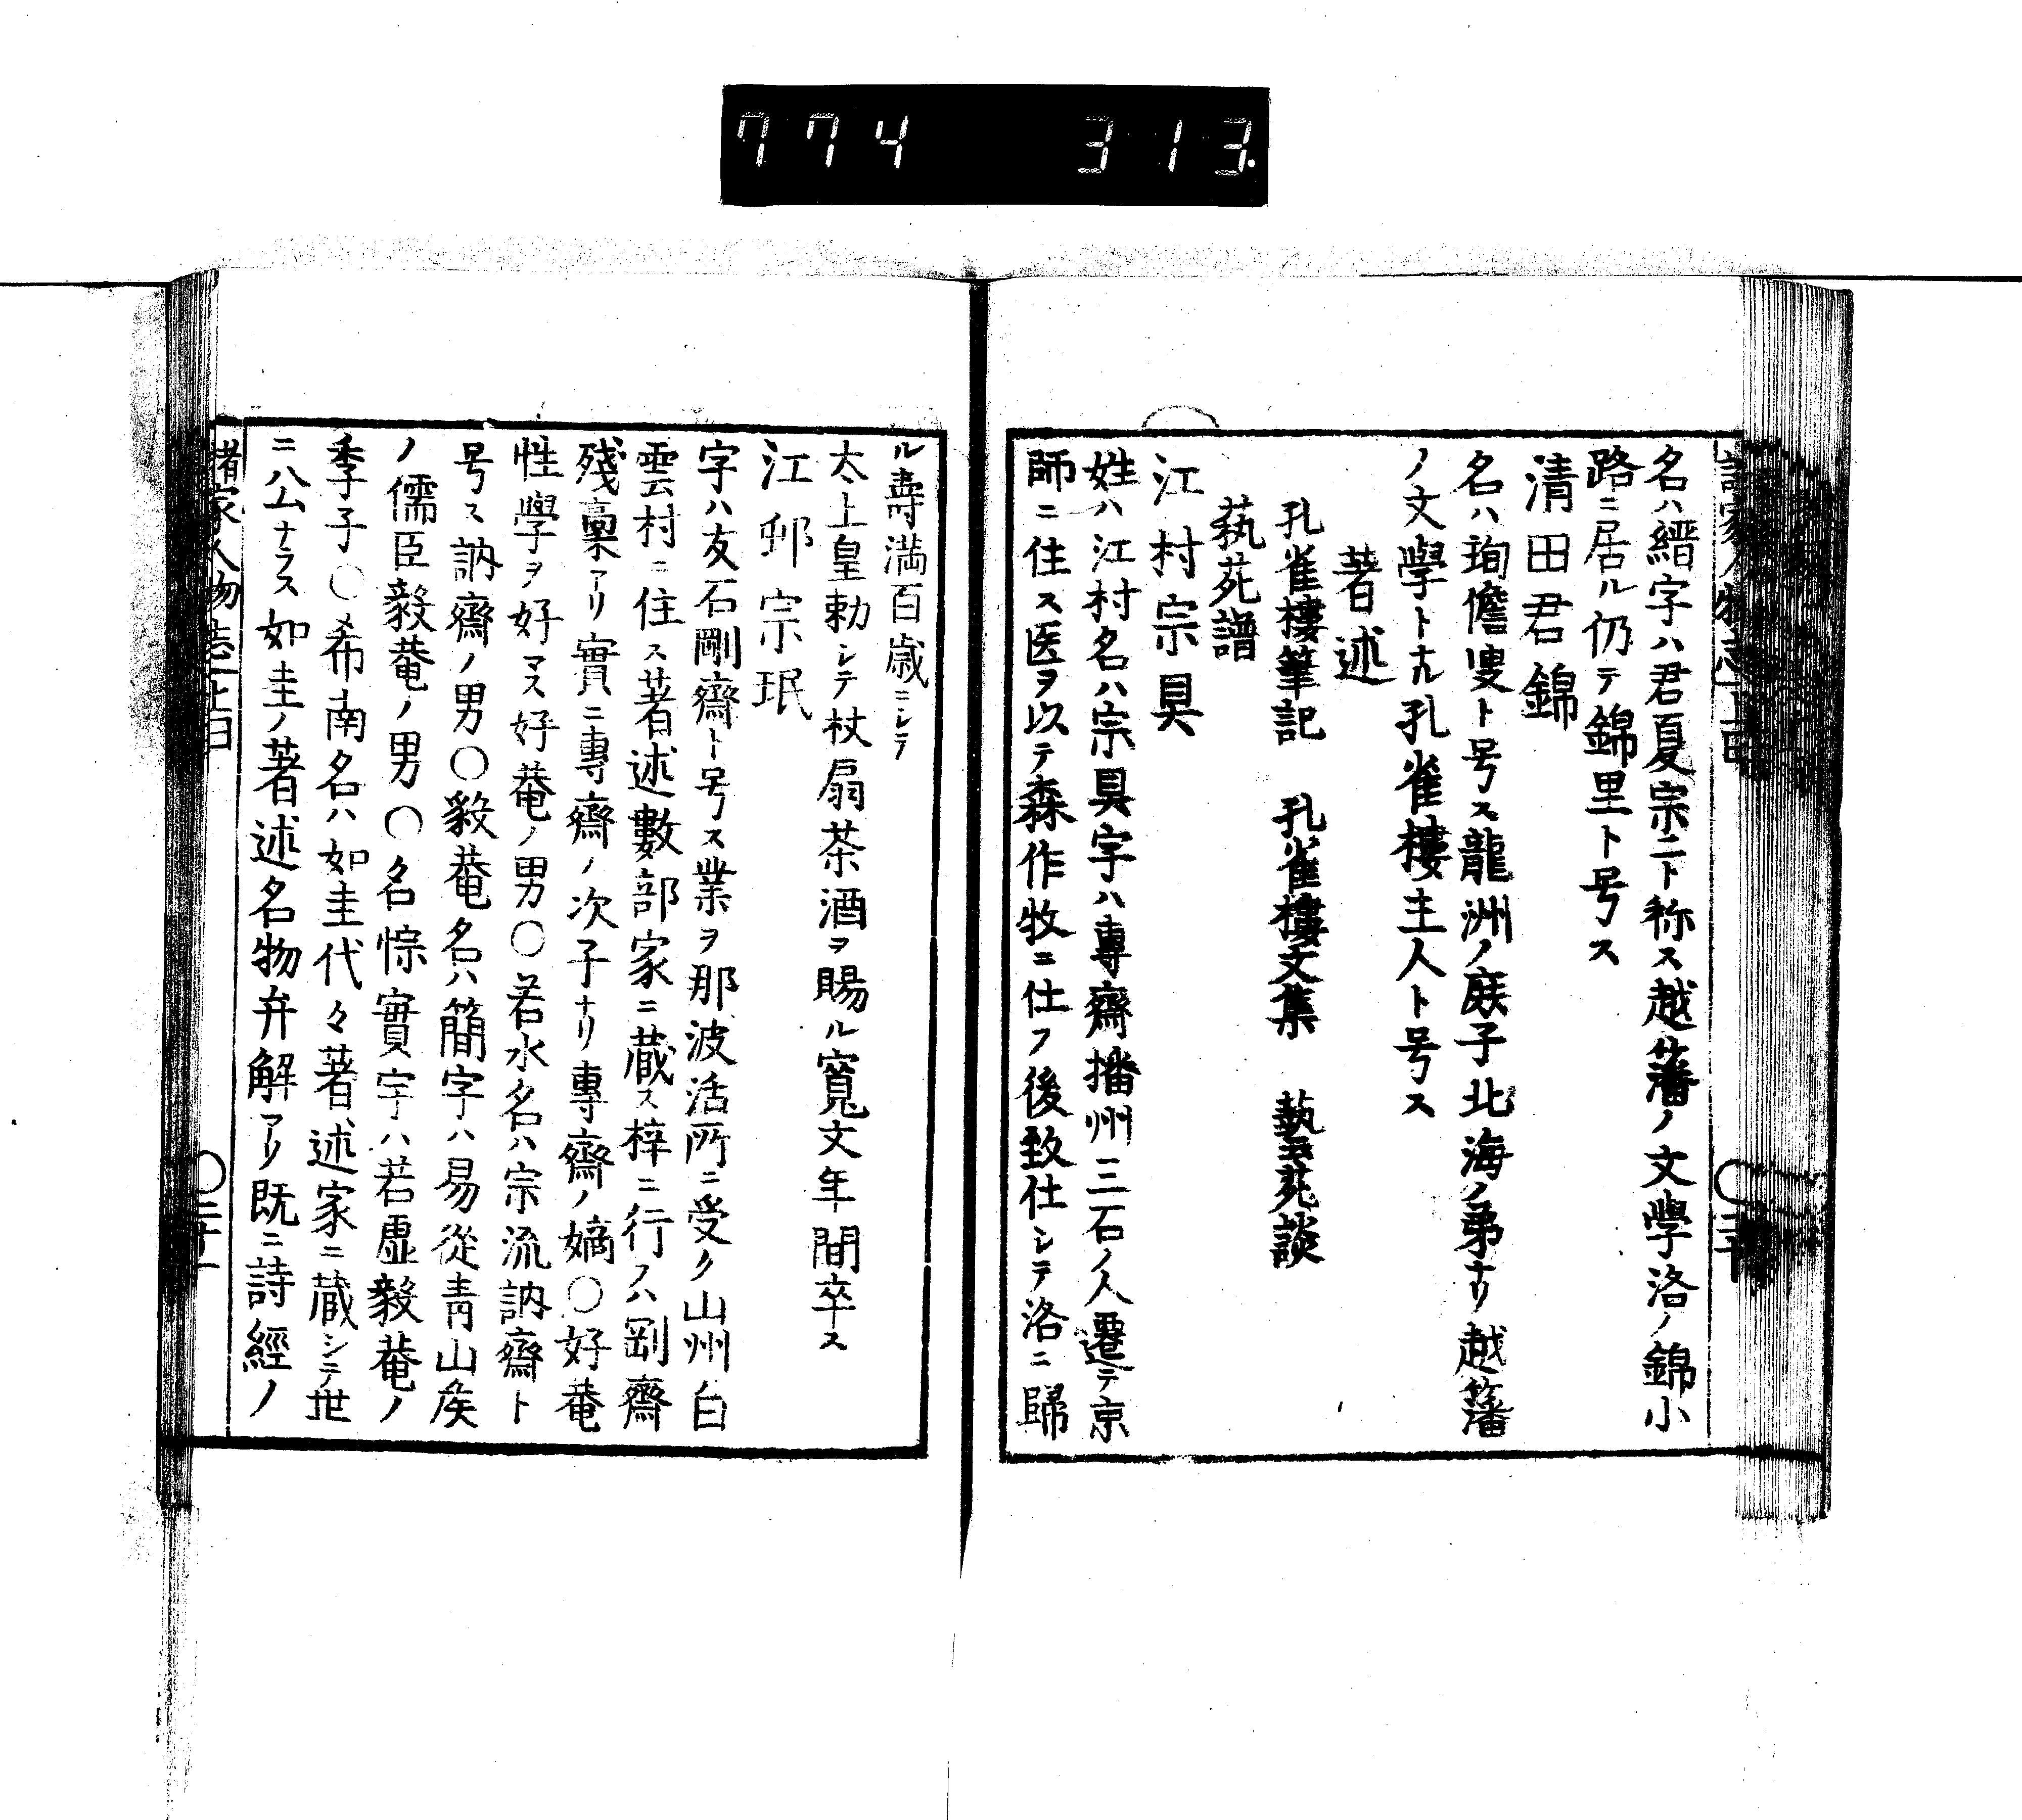 774 313
名ハ縉字ハ君夏宗ニト称ス越藩ノ文學洛ノ錦小
路ニ居ル仍テ錦里ト号ス
清田君錦
名ハ珣儋叟ト号ス龍洲ノ庶子北海ノ弟ナリ越藩
ノ文學トナル孔雀樓主人ト号ス
著述
孔雀樓筆記 孔雀樓文集 藝苑談
蓺苑譜
江村宗具
姓ハ江村名ハ宗具字ハ專齋播州三石ノ人遷テ京
師ニ住ス医ヲ以テ森作牧ニ仕フ後致仕シテ洛ニ歸
ル壽満百歳ニシテ
太上皇勅シテ杖扇茶酒ヲ賜ル寛文年間卒ス
江邨宗珉
字ハ友石剛齋ト号ス業ヲ那波活所ニ受ク山州白
雲村ニ住ス著述數部家ニ蔵ス梓ニ行フハ剛齋
殘稾アリ實ニ專齋ノ次子ナリ專齋ノ嫡〇好菴
性學ヲ好マス好菴ノ男〇若水名ハ宗流訥齋ト
号ス訥齋ノ男〇毅菴名ハ簡字ハ易從青山矦
ノ儒臣毅菴ノ男〇名悰實字ハ若虚毅菴ノ
季子〇希南名ハ如圭代々著述家ニ蔵シテ世
ニ公ナラス如圭ノ著述名物弁解アリ既ニ詩經ノ
諸家人物志上 〇二十一